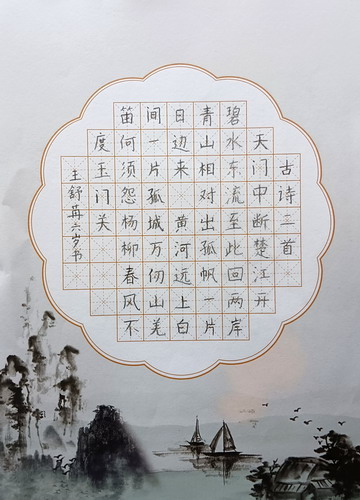 古诗三首
天门中断楚江开
碧水东流至此回两岸
青山相对出孤帆一片
日边来 黄河远上白
间一片孤城万仞山羌
笛何须怨杨柳春风不
度玉门关
王舒苒六岁书